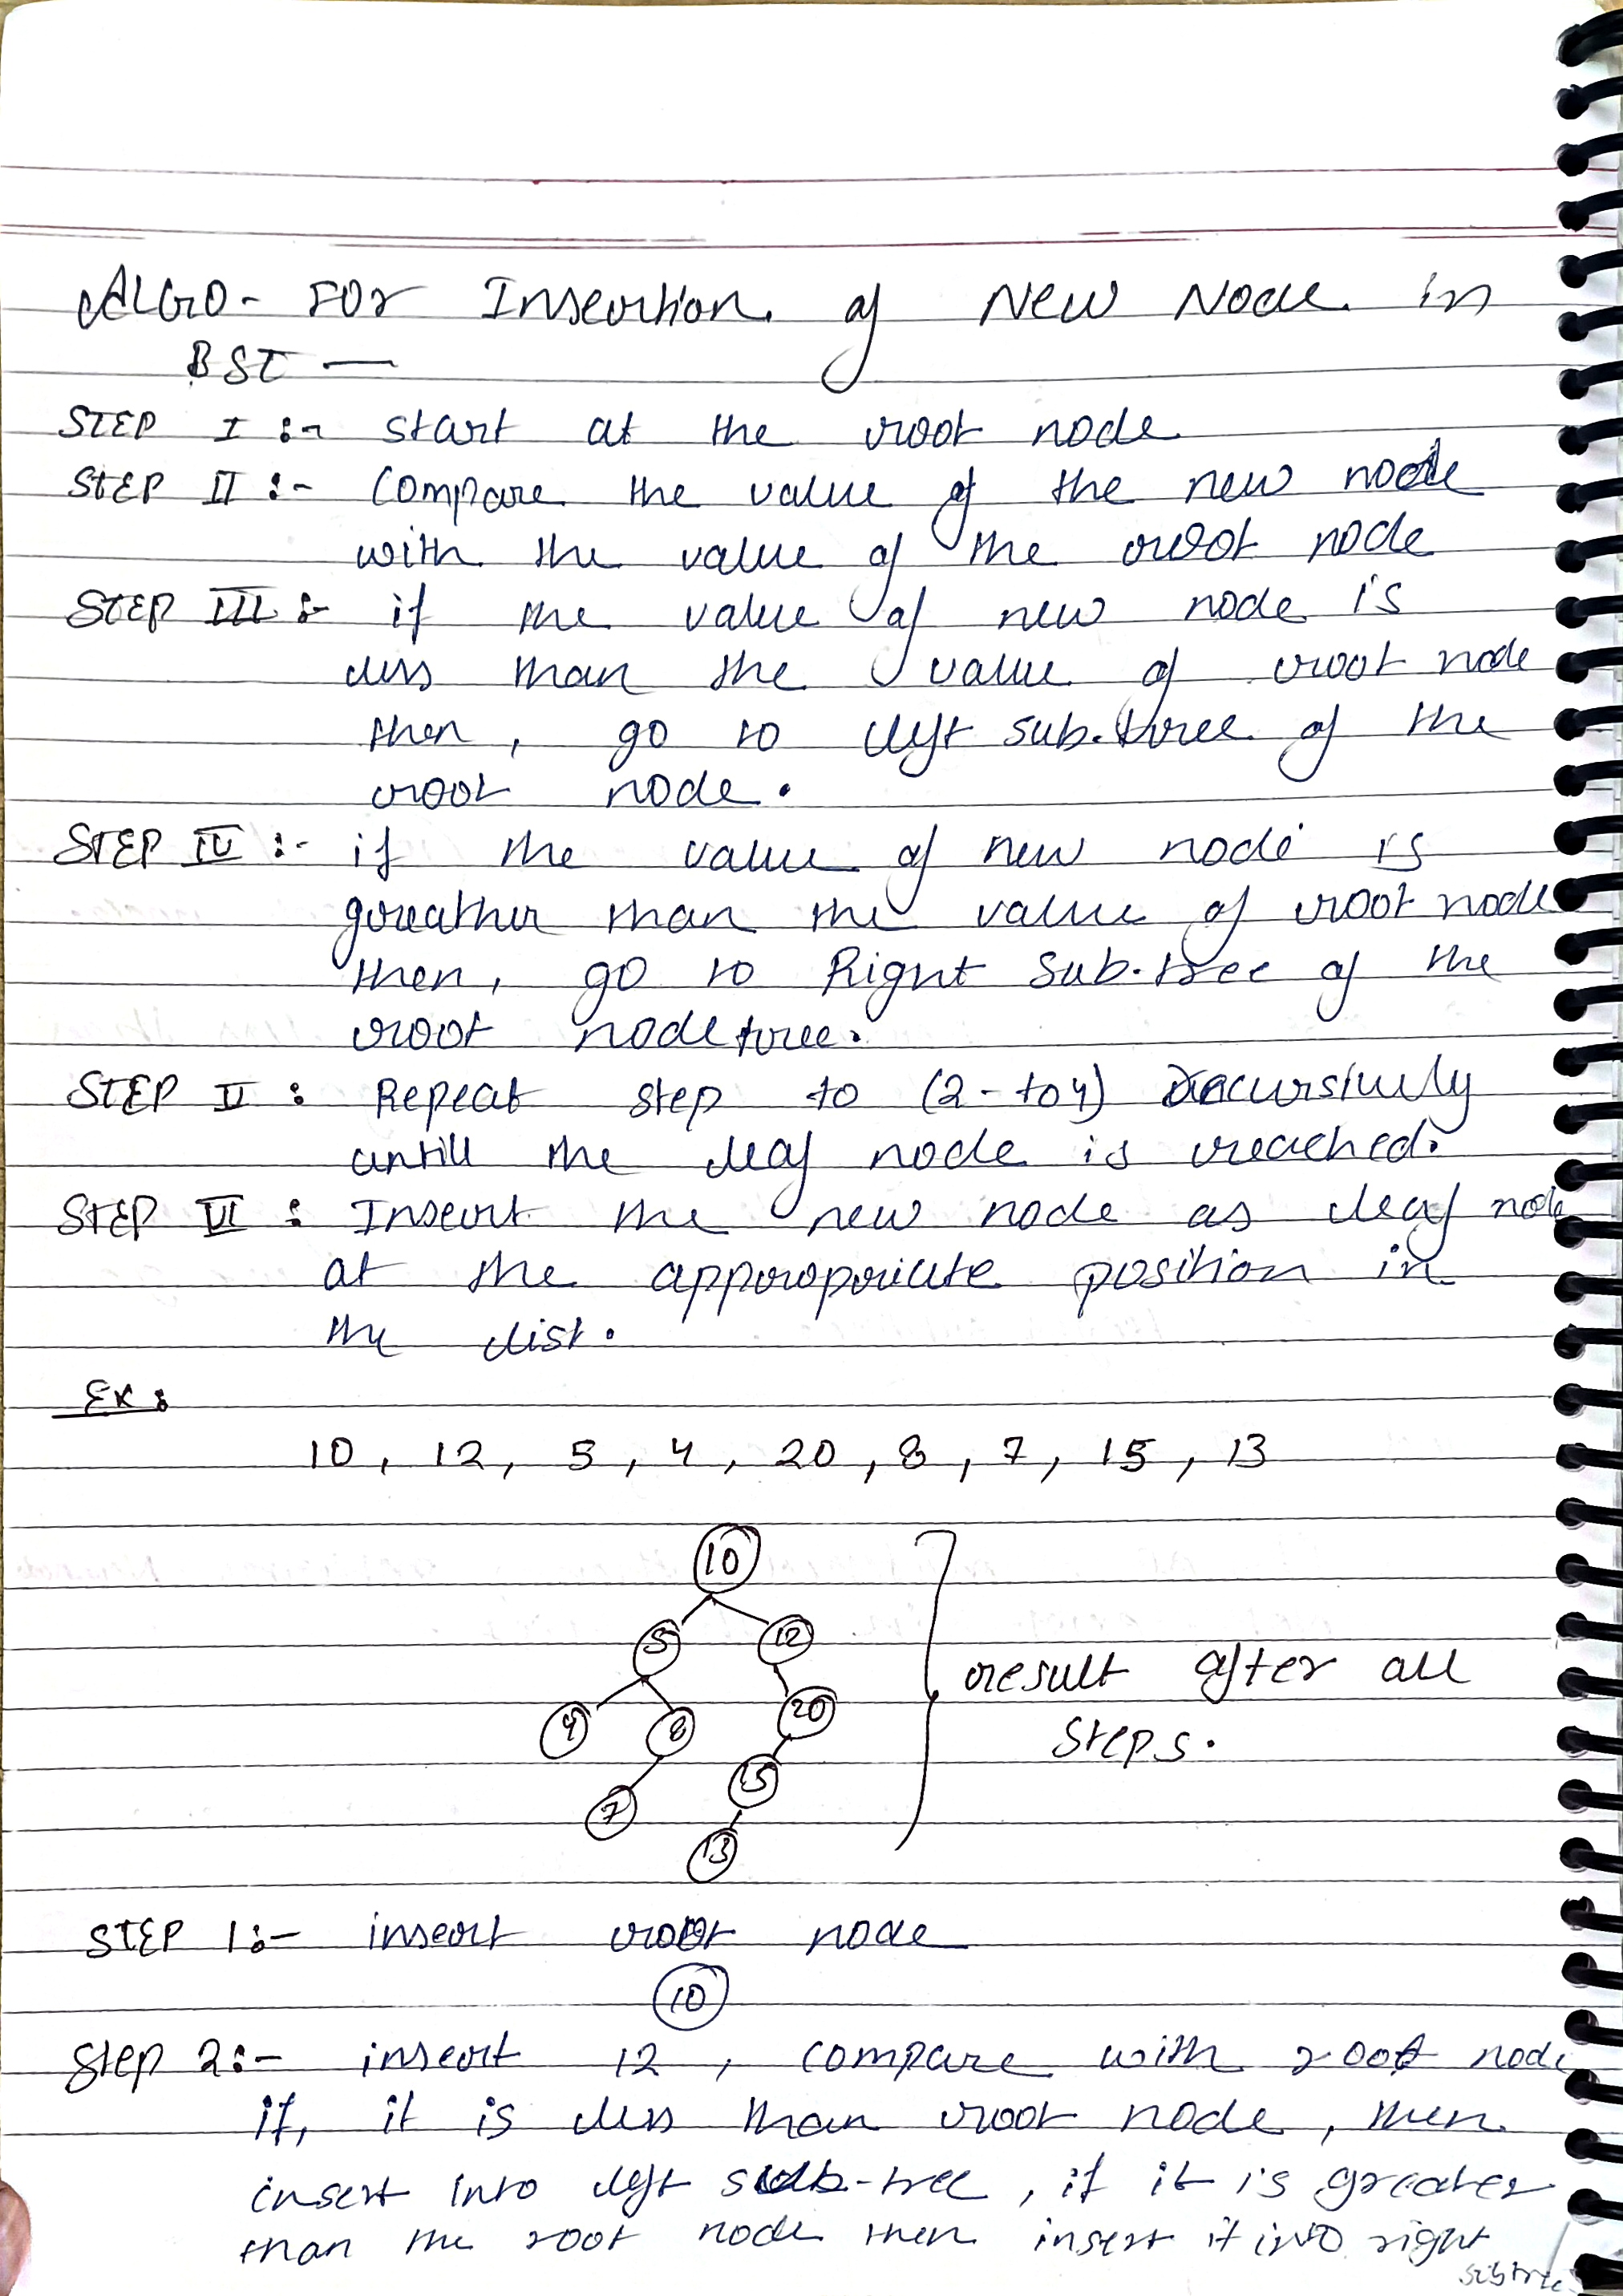 ALGO- FOR Insertion of New Node in
BST —
STEP I :- start at the root node
STEP II :- Compare the value of the new node
with the value of the root node
STEP III :- if the value of new node is
less than the value of root node
then, go to left sub-tree of the
root node.
STEP IV :- if the value of new node is
greather than the value of root node
then, go to Right sub-tree of the
root node tree.
STEP V : Repeat step to (2-to 4) recursively
untill the leaf node is reached.
STEP VI : Insert the new node as leaf node
at the appropriate position in
the list.
Ex :
10, 12, 5, 4, 20, 8, 7, 15, 13
10
5 12
4 8 20
result after all
steps.
15
7
13
STEP 1:- insert root node
10
Step 2:- insert 12, compare with root node
if, it is less than root node, then
insert into left sub-tree, if it is greater
than the root node then insert it into right
subtree